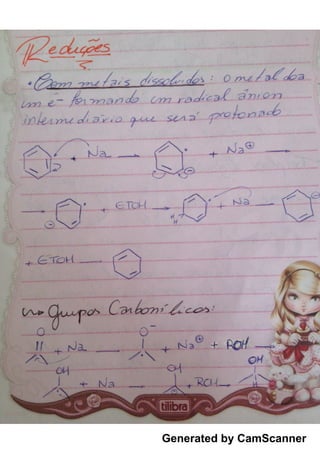 Reduções
• Com metais dissolvidos: o metal doa
um é formando um radical ânion
intermediário que será protonado
+ Na → + Na⊕ →
→ ⊖ + ETOH → H H + Na → ⊖
+ ETOH →
↳ Grupos Carbonílicos:
O O⁻
+ Na → + Na⊕ + ROH →
OH OH OH
+ Na → ⊖ + ROH → H
tilibra
Generated by CamScanner